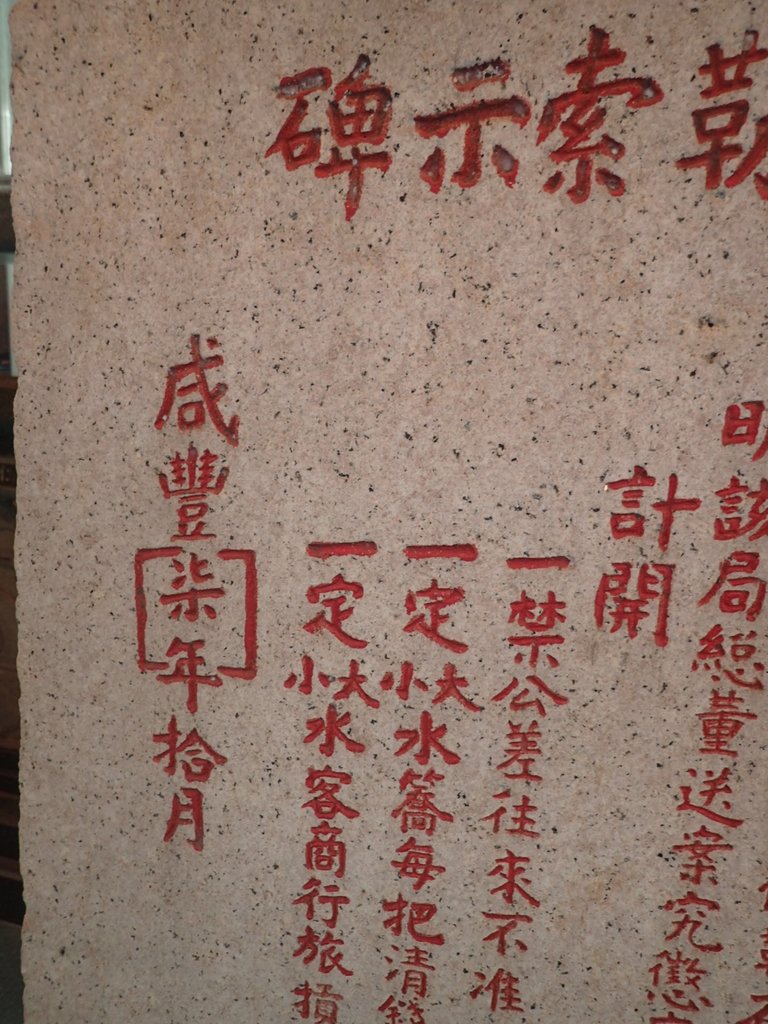 勒索示碑
明該局總董送案究懲
計開
一禁公差往來不准
一定大小水篙每把清錢
一定大小水客商行旅
咸豐柒年拾月